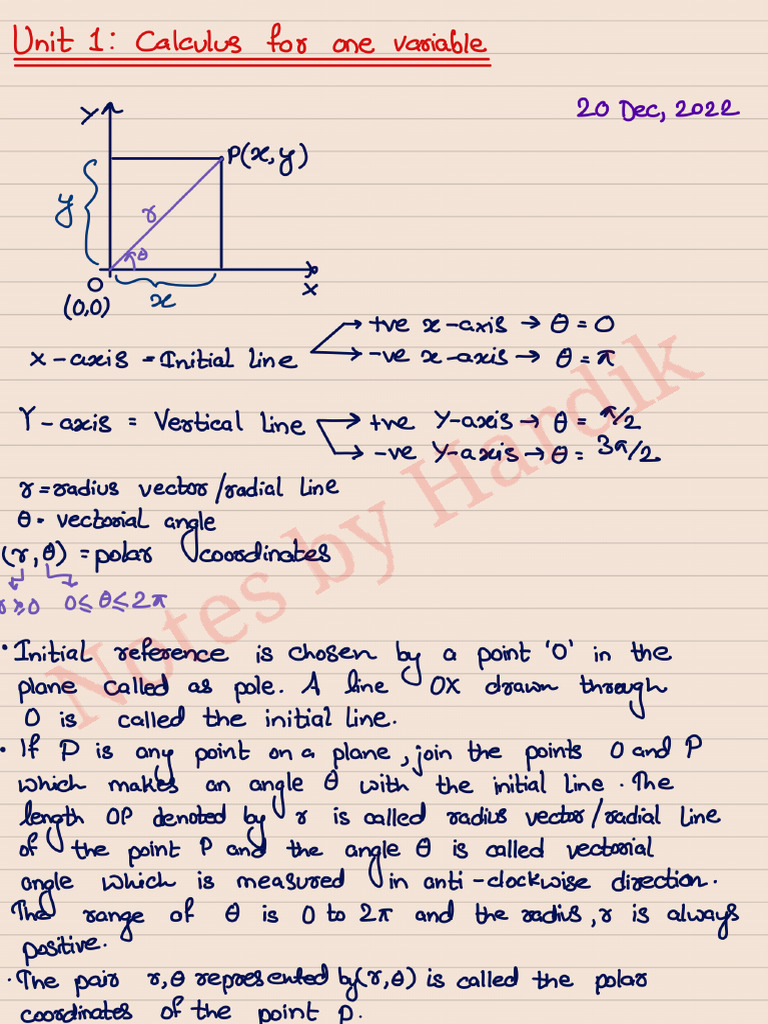 Unit 1: Calculus for one variable
20 Dec, 2022
Y
P(x, y)
y
r
θ
O
x
X
(0,0)
+ve x-axis → θ = 0
X-axis = Initial line
-ve x-axis → θ = π
Y-axis = Vertical line
+ve Y-axis → θ = π/2
-ve Y-axis → θ = 3π/2
r = radius vector/radial line
θ = vectorial angle
(r, θ) = polar coordinates
r ≥ 0 0 ≤ θ ≤ 2π
• Initial reference is chosen by a point 'O' in the
plane called as pole. A line OX drawn through
O is called the initial line.
• If P is any point on a plane, join the points O and P
which makes an angle θ with the initial line. The
length OP denoted by r is called radius vector/radial line
of the point P and the angle θ is called vectorial
angle which is measured in anti-clockwise direction.
The range of θ is 0 to 2π and the radius, r is always
positive.
• The pair r, θ represented by (r, θ) is called the polar
coordinates of the point P.
Notes by Hardik